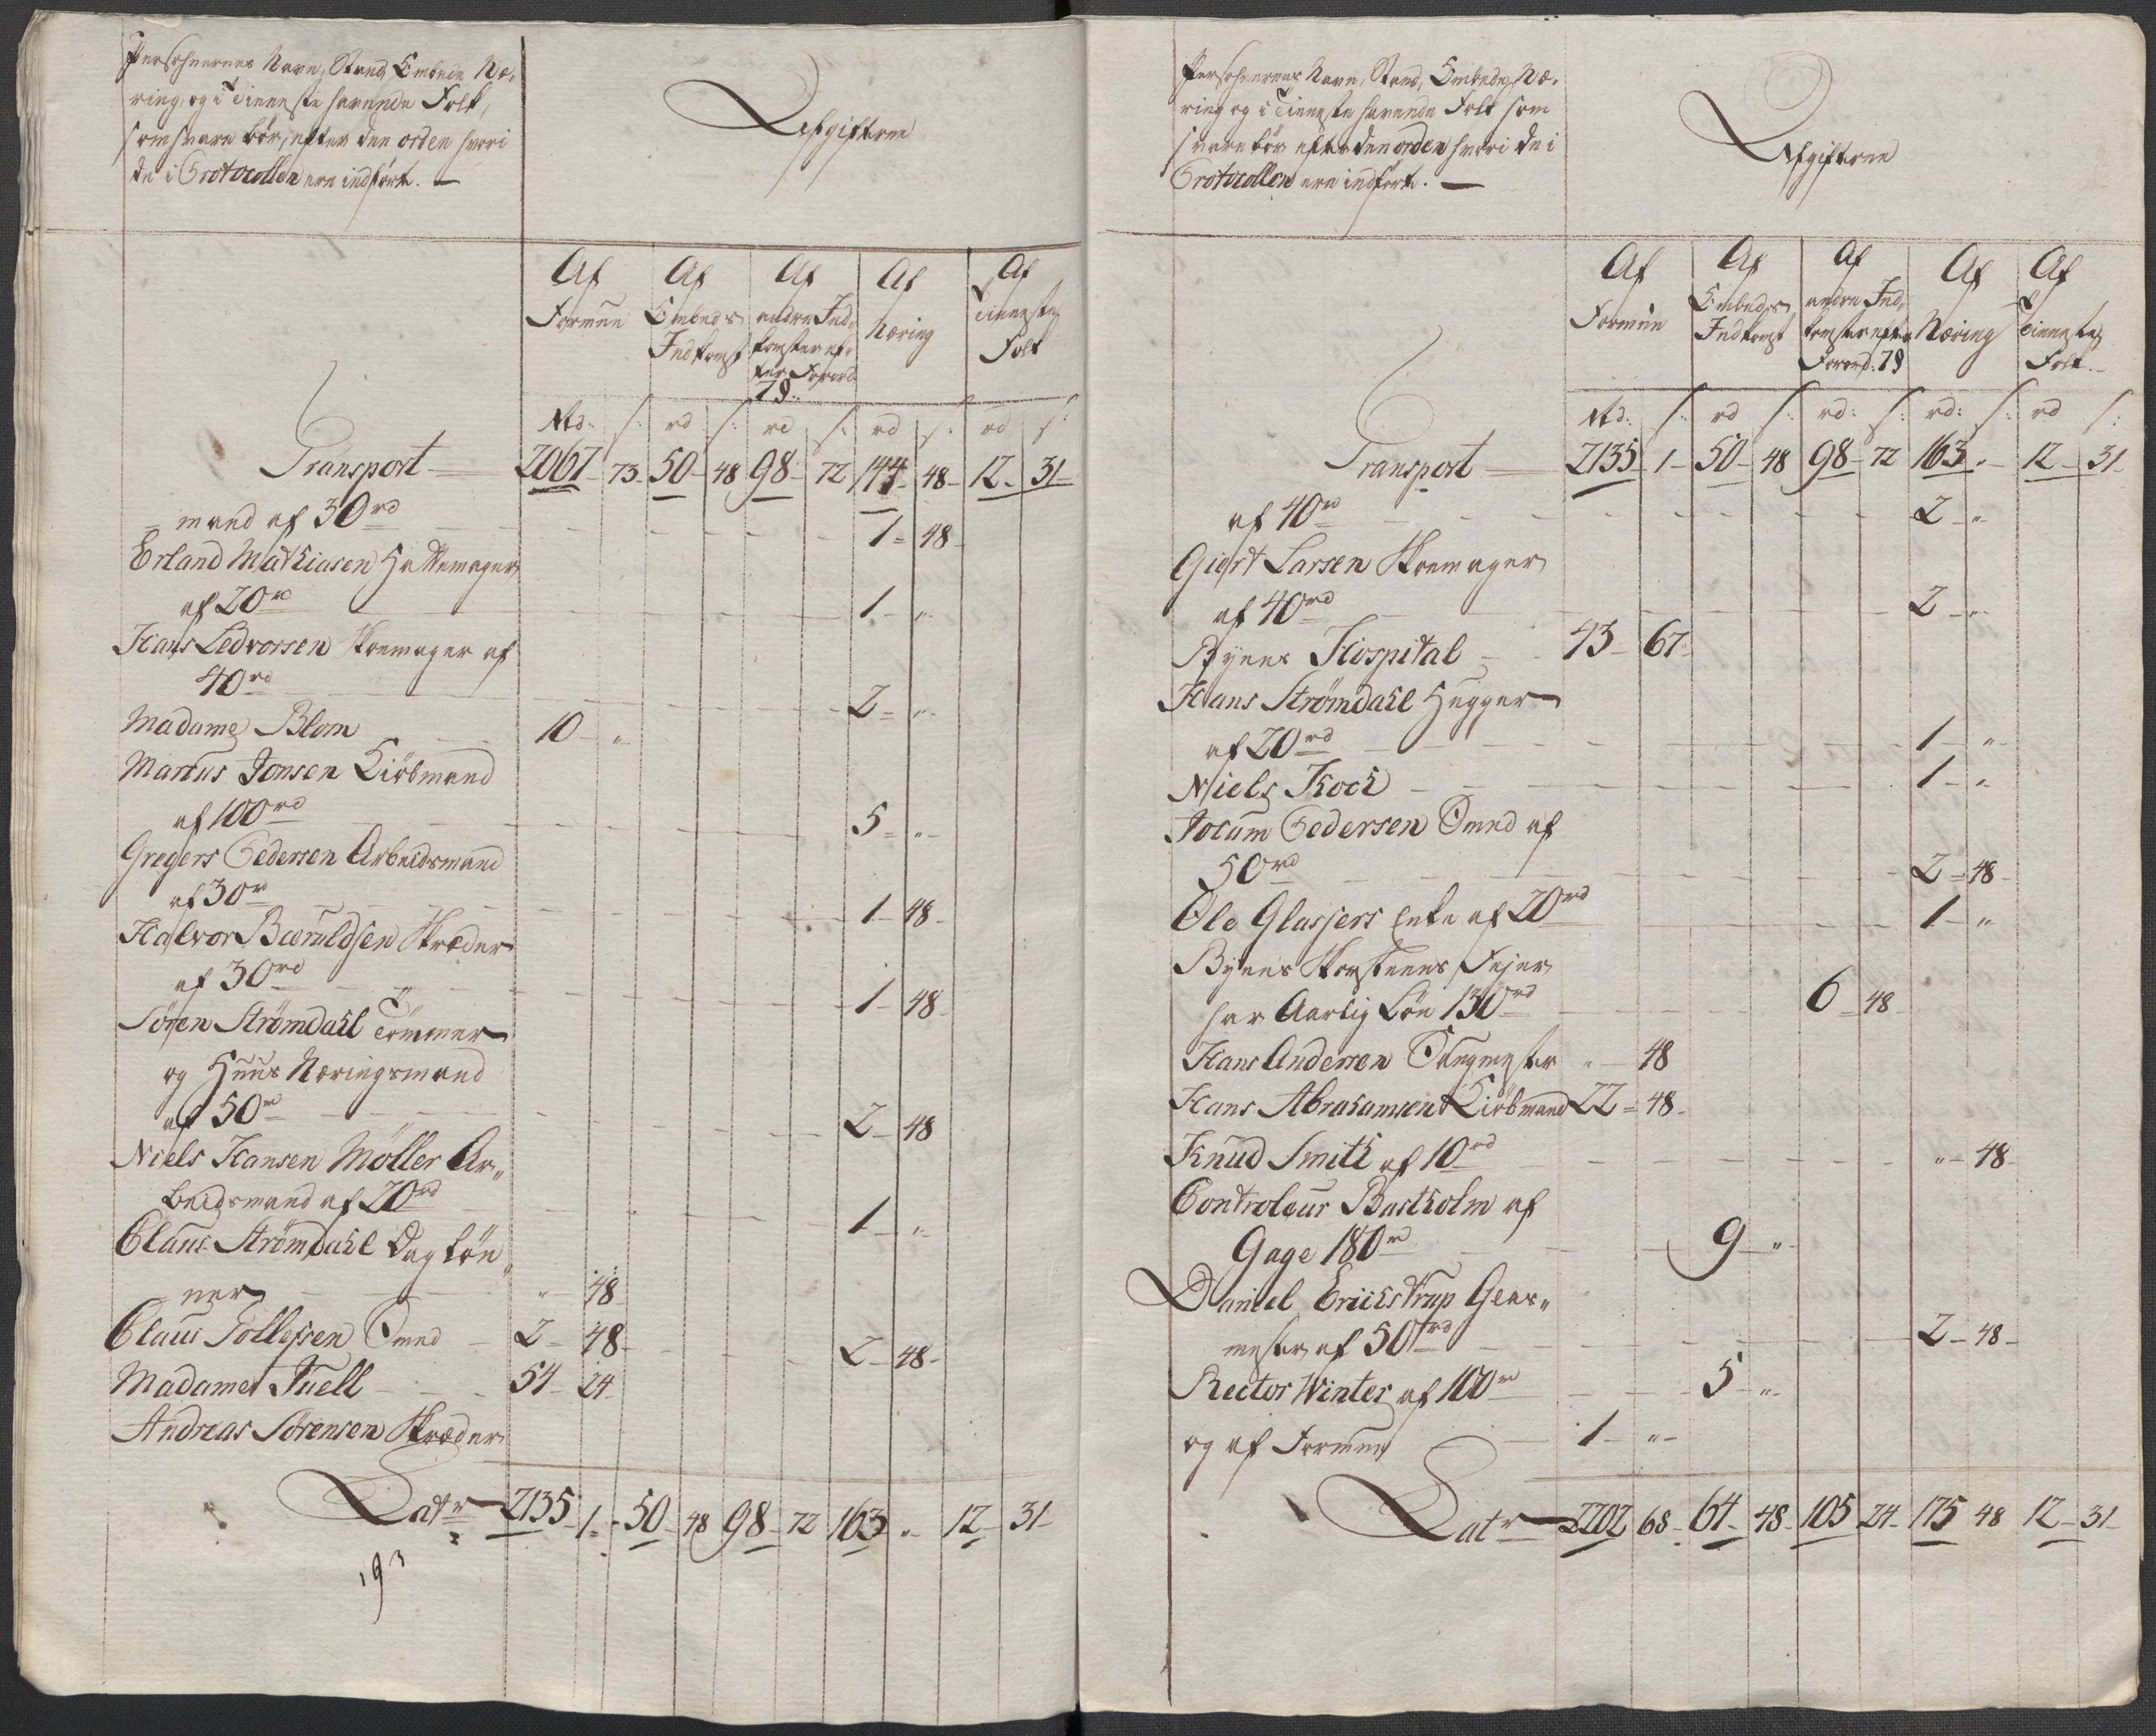 Persohnernes Navn, Stand, Embede, Næ-
ring, og i Tieneste havende Folk,
som svare bør, efter den orden hvori
de i Protocollen ere indførte. —
Afgifterne
Af Formue
Af Embeds Indkomst
Af andre Ind-komster ef-ter Forord 7 §.
Af Næring
Af Tieneste Folk
Rd. s: rd s: rd s: rd s: rd s:
Transport — 2067 - 73 - 50 - 48 98 - 72 144 - 48 - 12 - 31 -
mand af 30 rd 1 - 48
Erland Mathiasen Hattemager
af 20 rd 1 - "
Hans Ledvorsen Skoemager af
40 rd 2 - "
Madame Blom 10 - "
Marcus Jonsen Kiøbmand
af 100 rd 5 - "
Gregers Pedersen Arbeidsmand
af 30 rd 1 - 48
Halvor Bæruldsen Skræder
af 30 rd 1 - 48
Søren Strømdahl Tømmer
og Huus Næringsmand
af 50 rd 2 - 48
Niels Hansen Møller Ar„
beidsmand af 20 rd 1 - "
Claus Strømdahl Dagløn„
ner " - 48
Claus Tollefsen Smed 2 - 48 2 - 48
Madame Juell 54 - 24
Andreas Sørensen Skræder
Lat r 2135 - 1 - 50 - 48 98 - 72 163 " 12 - 31 -
193
Persohnernes Navn, Stand, Embede, Næ-
ring og i Tieneste havende Folk som
svare bør efter den orden hvori de i
Protocollen ere indførte. —
Afgifterne
Af Formue
Af Embeds Indkomst
Af andre Ind-komster efter Forord. 7 §
Af Næring
Af Tieneste Folk.
Rd. s: rd s: rd: s: rd: s: rd s:
Transport — 2135 - 1 - 50 - 48 98 - 72 163 " 12 - 31
af 40 rd 2 - "
Giert Larsen Skoemager
af 40 rd 2 - "
Byens Hospital 43 - 67
Hans Strømdahl Hugger
af 20 rd 1 - "
Niels Koch 1 - "
Jocum Pedersen Smed af
50 rd 2 - 48
Ole Glasjers Enke af 20 rd 1 - "
Byens Skorsteens Fejer
har Aarlig Løn 130 rd 6 - 48
Hans Andersen Tangmester " - 48
Hans Abrahamsen Kiøbmand 22 - 48
Knud Smith af 10 rd " - 48
Controleur Bustholm af
Gage 180 rd 9 - "
Daniel Erichstrup Glar„
mester af 50 rd 2 - 48
Rector Winter af 100 rd 5 - "
og af Formue 1 - "
Lat r 2202 68 - 64 - 48 - 105 24 - 175 48 12 - 31 -